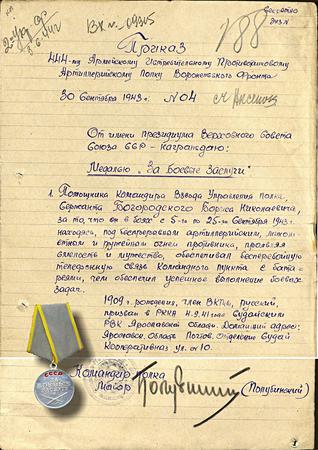 Вх. №
188
Приказ
444-му Армейскому Истребительному Противотанковому
Артиллерийскому Полку Воронежского Фронта
30 Сентября 1943 г. № 04
От имени президиума Верховного совета
Союза ССР - награждаю:
Медалью „За Боевые Заслуги"
1. Помощника Командира Взвода Управления полка,
Сержанта Богородского Бориса Николаевича,
за то, что он в боях с 5-го по 25-го Сентября 1943 г.
находясь под беспрерывным артиллерийским, мином-
ётным и ружейным огнем противника, проявляя
смелость и мужество, обеспечивал бесперебойную
телефонную связь Командного пункта с бата-
реями, чем обеспечил успешное выполнение боевых
задач.
1909 г. рождения, член ВКП(б), русский,
призван в РККА 41 года
РВК Ярославской области. Домашний адрес:
Ярославск. область Почтов. отделение
Кооперативная ул. 10.
Командир полка
Майор
(Полубинский)
ЗА
БОЕВЫЕ
ЗАСЛУГИ
СССР